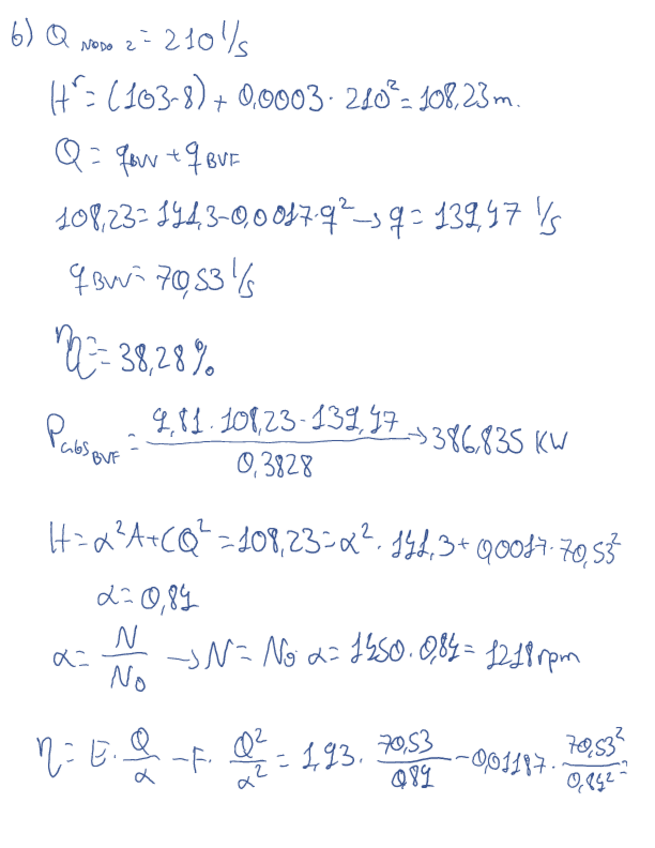 b) Q NODO 2 = 210 l/s
H^r = (103-8) + 0,0003 · 210² = 108,23 m.
Q = q BVV + q BVF
108,23 = 141,3 - 0,0017 · q² → q = 139,47 l/s
q BVV = 70,53 l/s
η = 38,28 %
P abs BVF = 9,81 · 108,23 · 139,47 / 0,3828 → 386,835 KW
H = α²A + CQ² = 108,23 = α² · 141,3 + 0,0017 · 70,53²
α = 0,84
α = N / No → N = No α = 1450 · 0,84 = 1218 rpm
η = E · Q/α - F · Q²/α² = 1,93 · 70,53/0,84 - 0,01187 · 70,53²/0,84² =